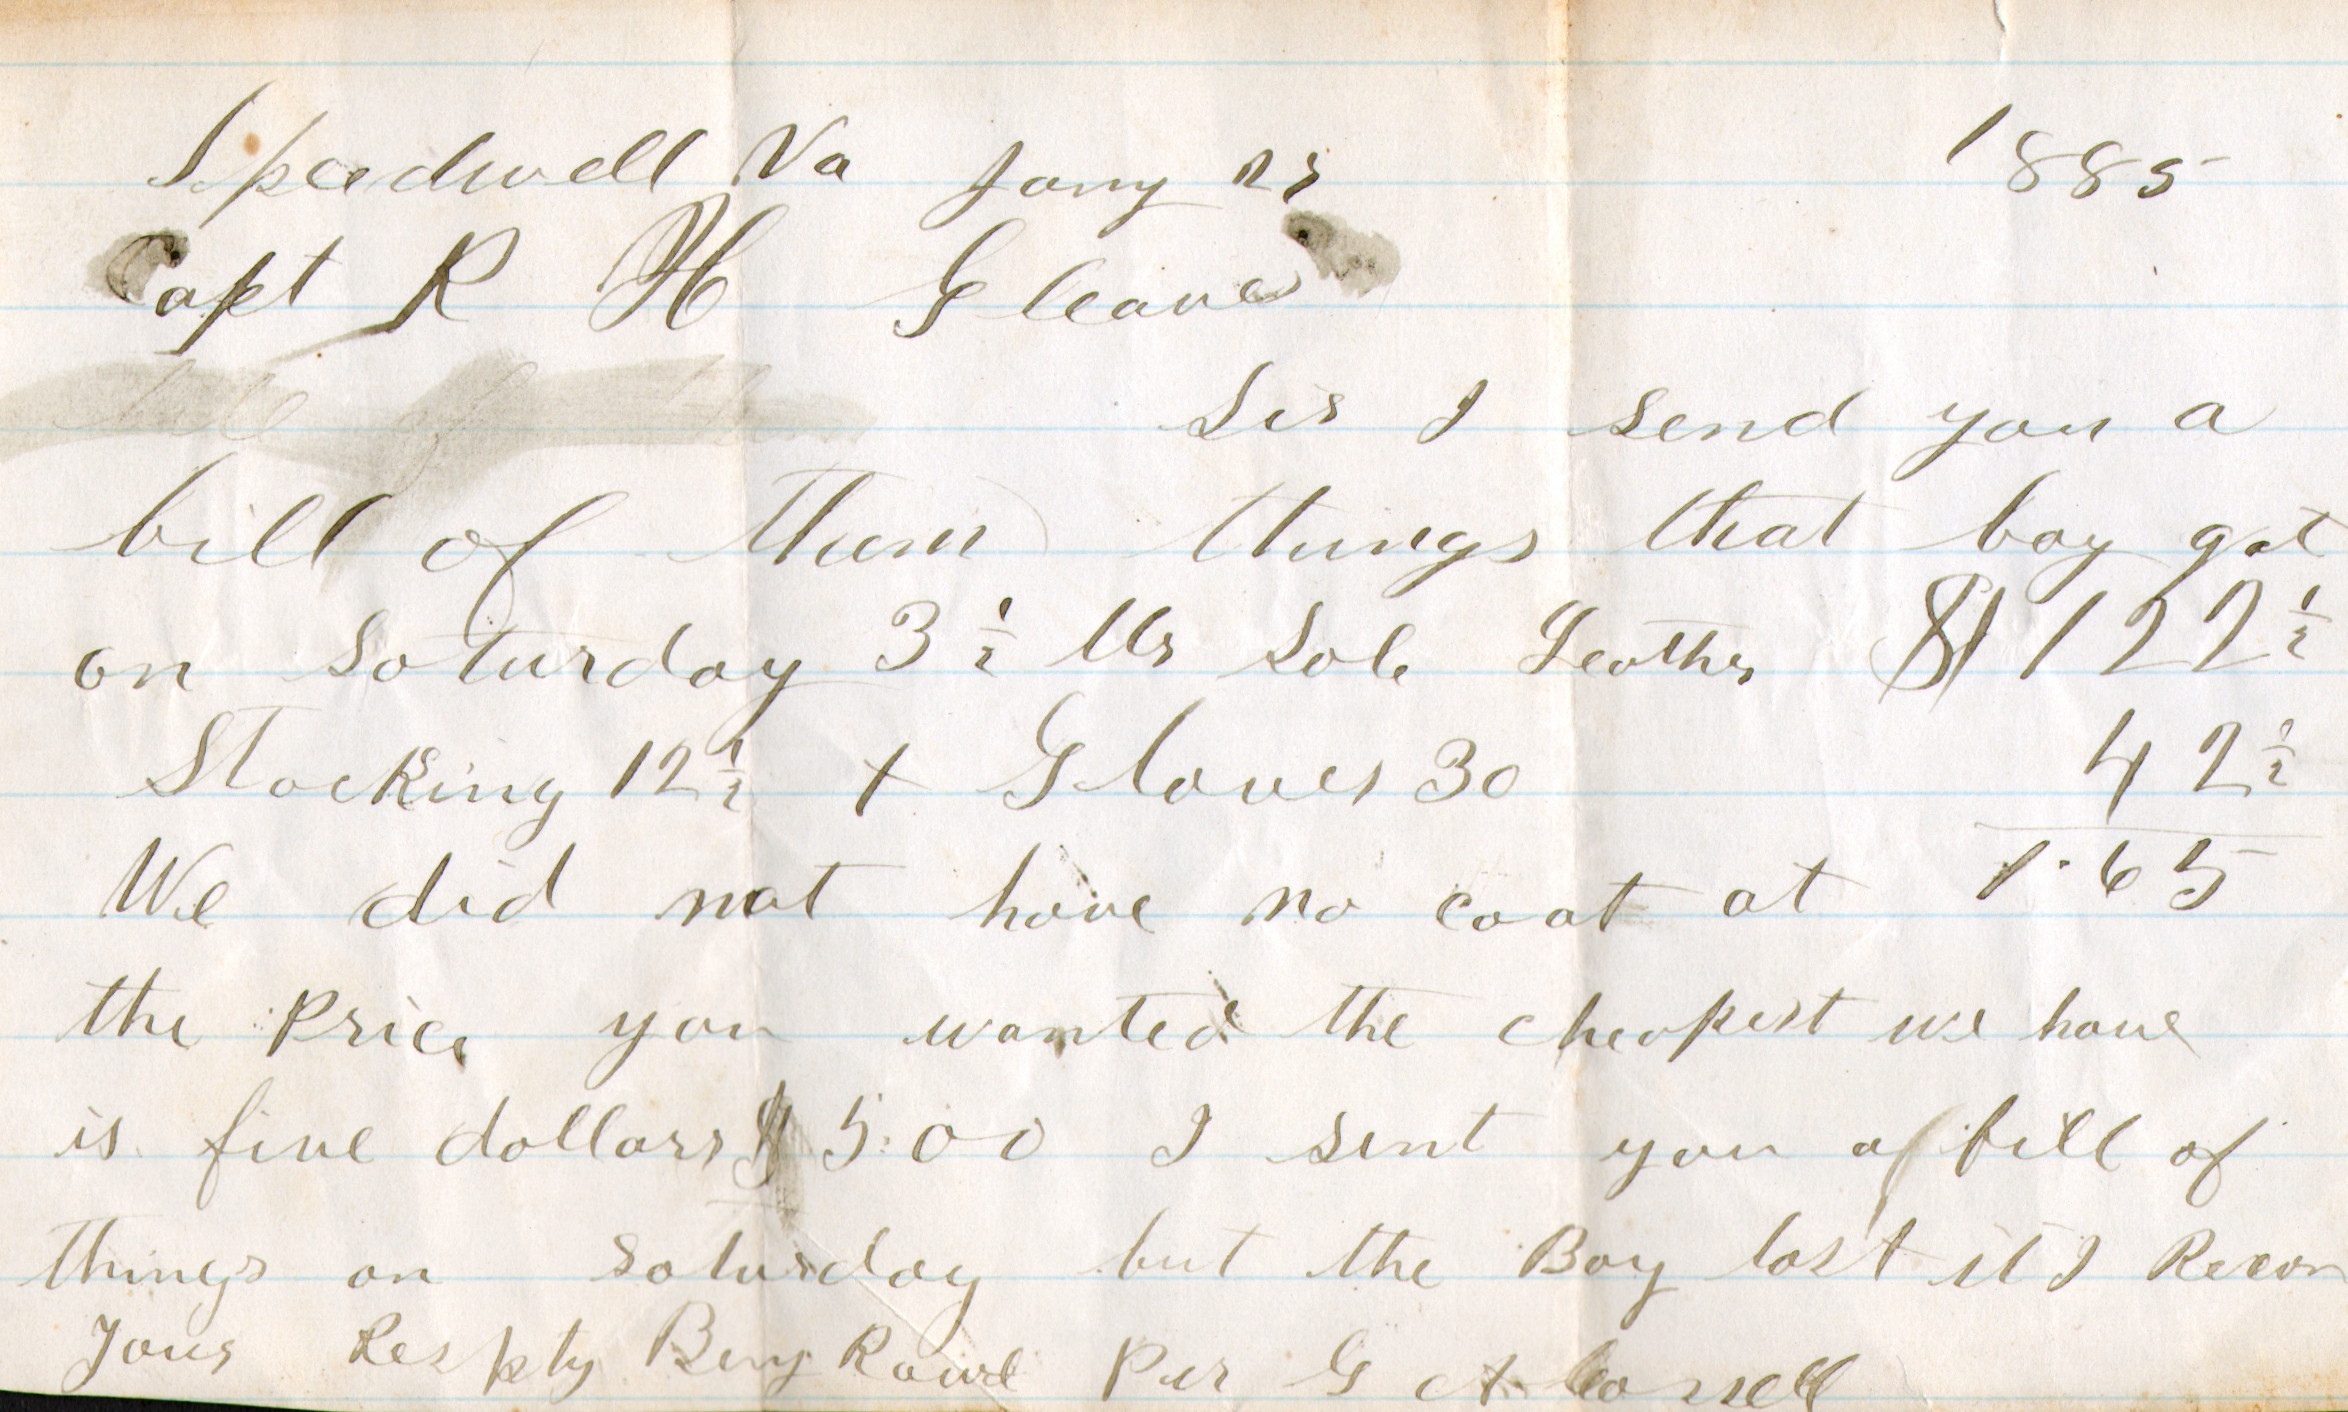 Speedwell Va Jany 1885
Capt R H Gleave
Sir I send you a
bill of them things that boy got
on Saturday 3 ½ lbs Sole Leather $1 22 ½
Stocking 12 ½ + Gloves 30 42 ½
We did not have no coat at 1.65
the Price you wanted the cheapest we have
is five dollars $5.00 I sent you a bill of
things on Saturday but the Boy lost it I Recon
Yours Respty Benj Per G A